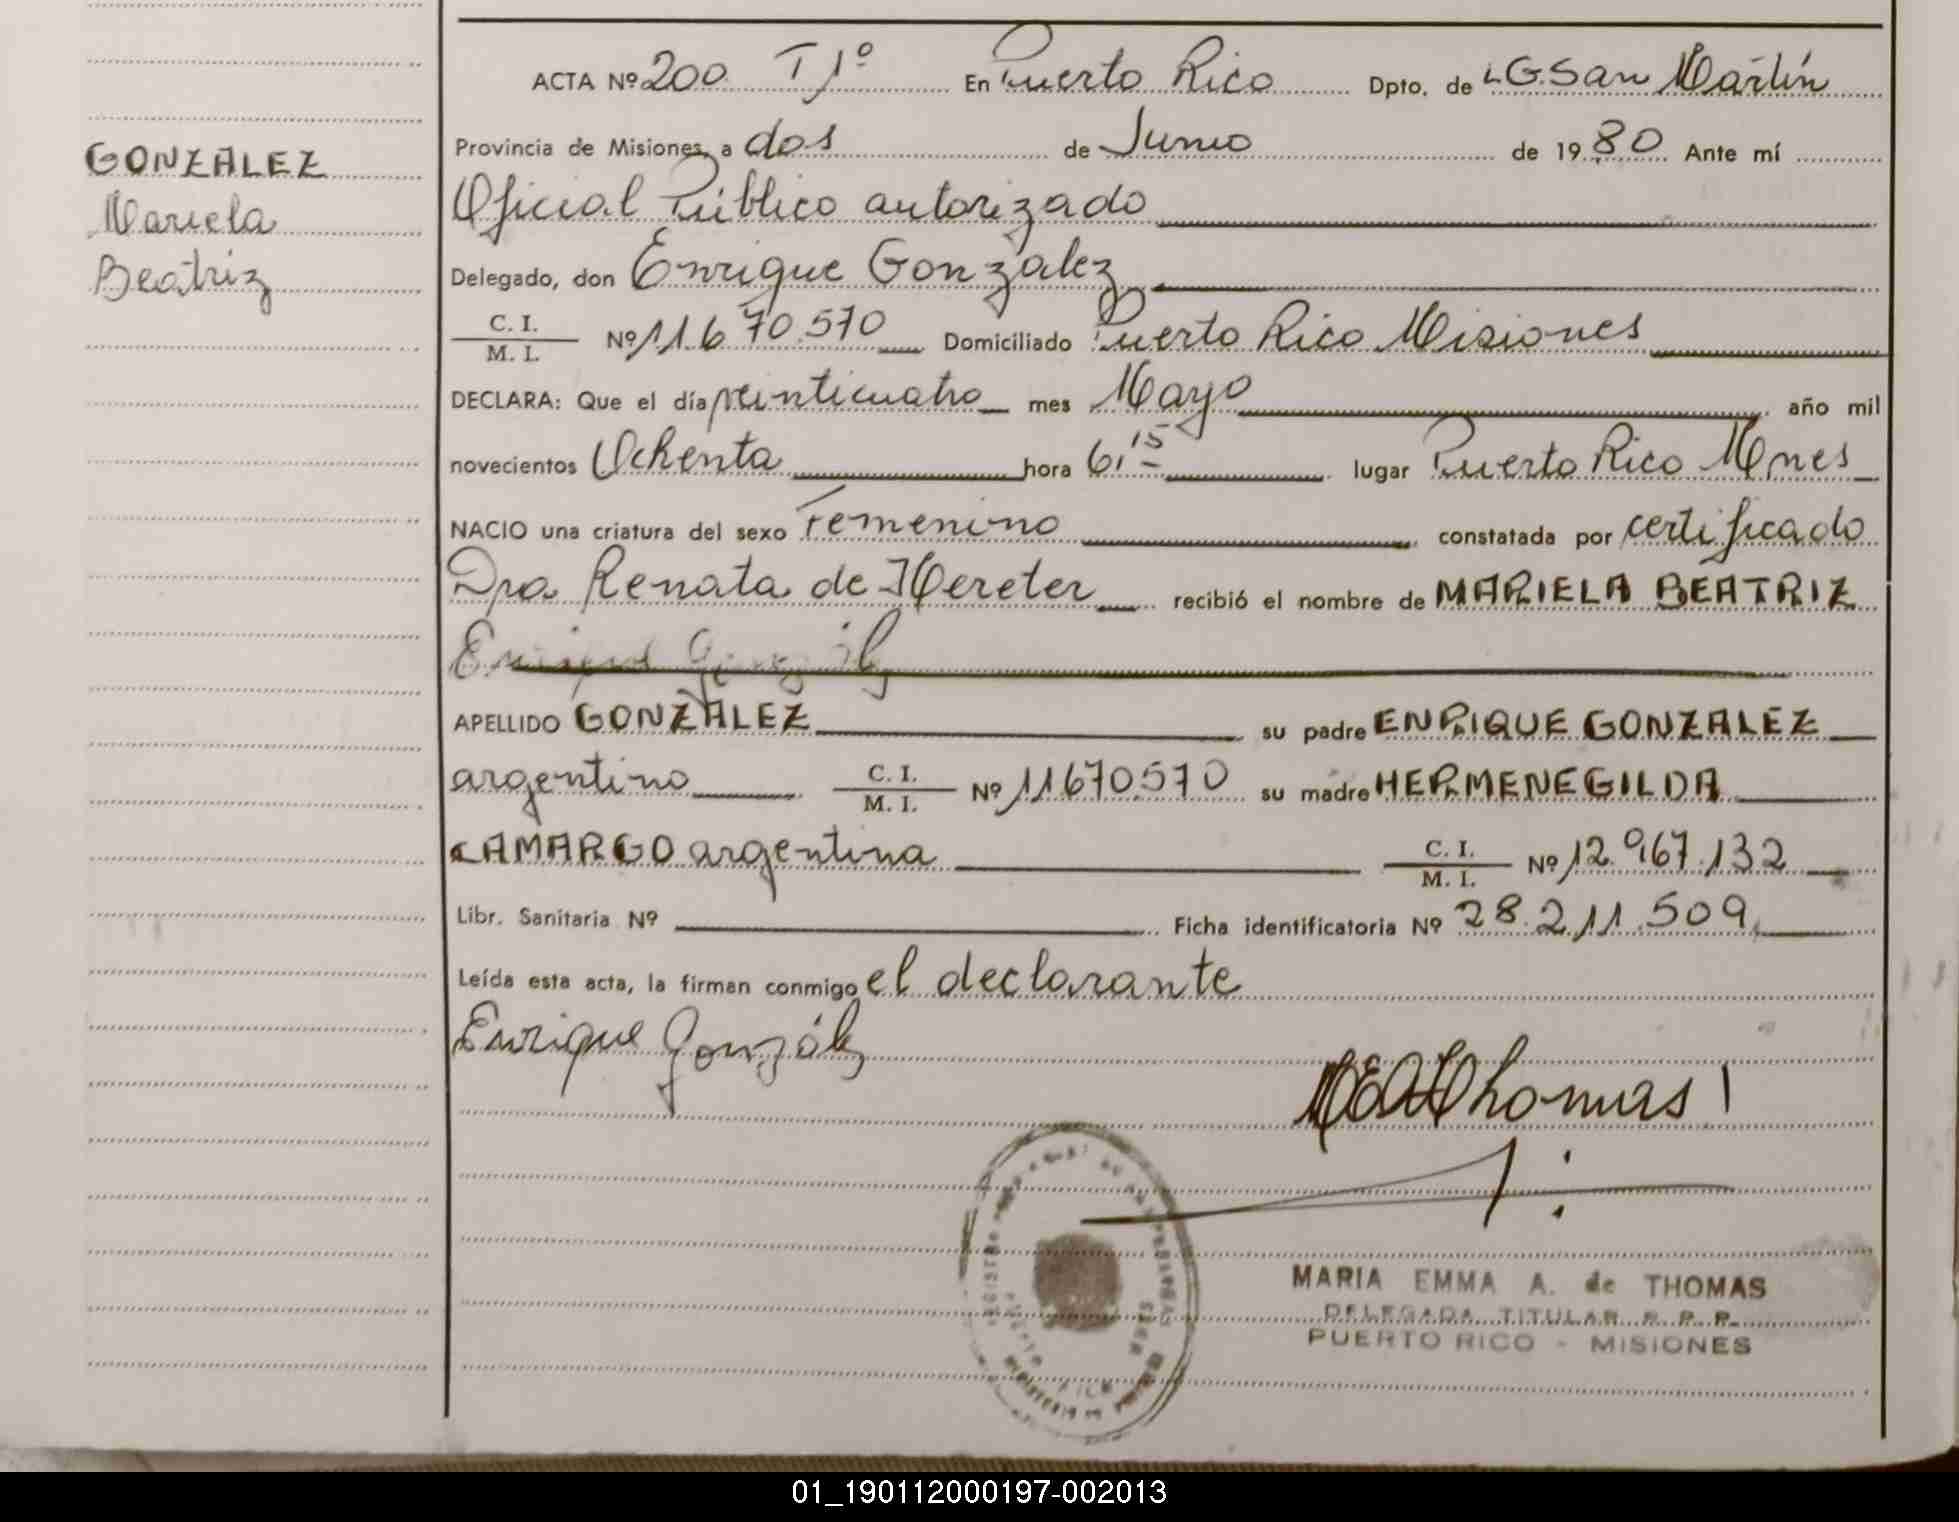 ACTA Nº 200 T 1º En Puerto Rico Dpto. de L.G. San Martín
Provincia de Misiones, a dos de Junio de 1980 Ante mí
GONZALEZ
Mariela
Beatriz
Oficial Público autorizado
Delegado, don Enrique González
C. I. / M. I. Nº 11.670.570 Domiciliado Puerto Rico Misiones
DECLARA: Que el día veinticuatro mes Mayo año mil
novecientos Ochenta hora 6,15 lugar Puerto Rico Mnes
NACIO una criatura del sexo Femenino constatada por certificado
Dra Renata de Hereter recibió el nombre de MARIELA BEATRIZ
Enrique González
APELLIDO GONZALEZ su padre ENRIQUE GONZALEZ
argentino C. I. / M. I. Nº 11670.570 su madre HERMENEGILDA
CAMARGO argentina C. I. / M. I. Nº 12.967.132
Libr. Sanitaria Nº Ficha identificatoria Nº 28.211.509
Leída esta acta, la firman conmigo el declarante
Enrique González
MEAThomas
MARIA EMMA A. de THOMAS
DELEGADA TITULAR R. P. P.
PUERTO RICO - MISIONES
01_190112000197-002013